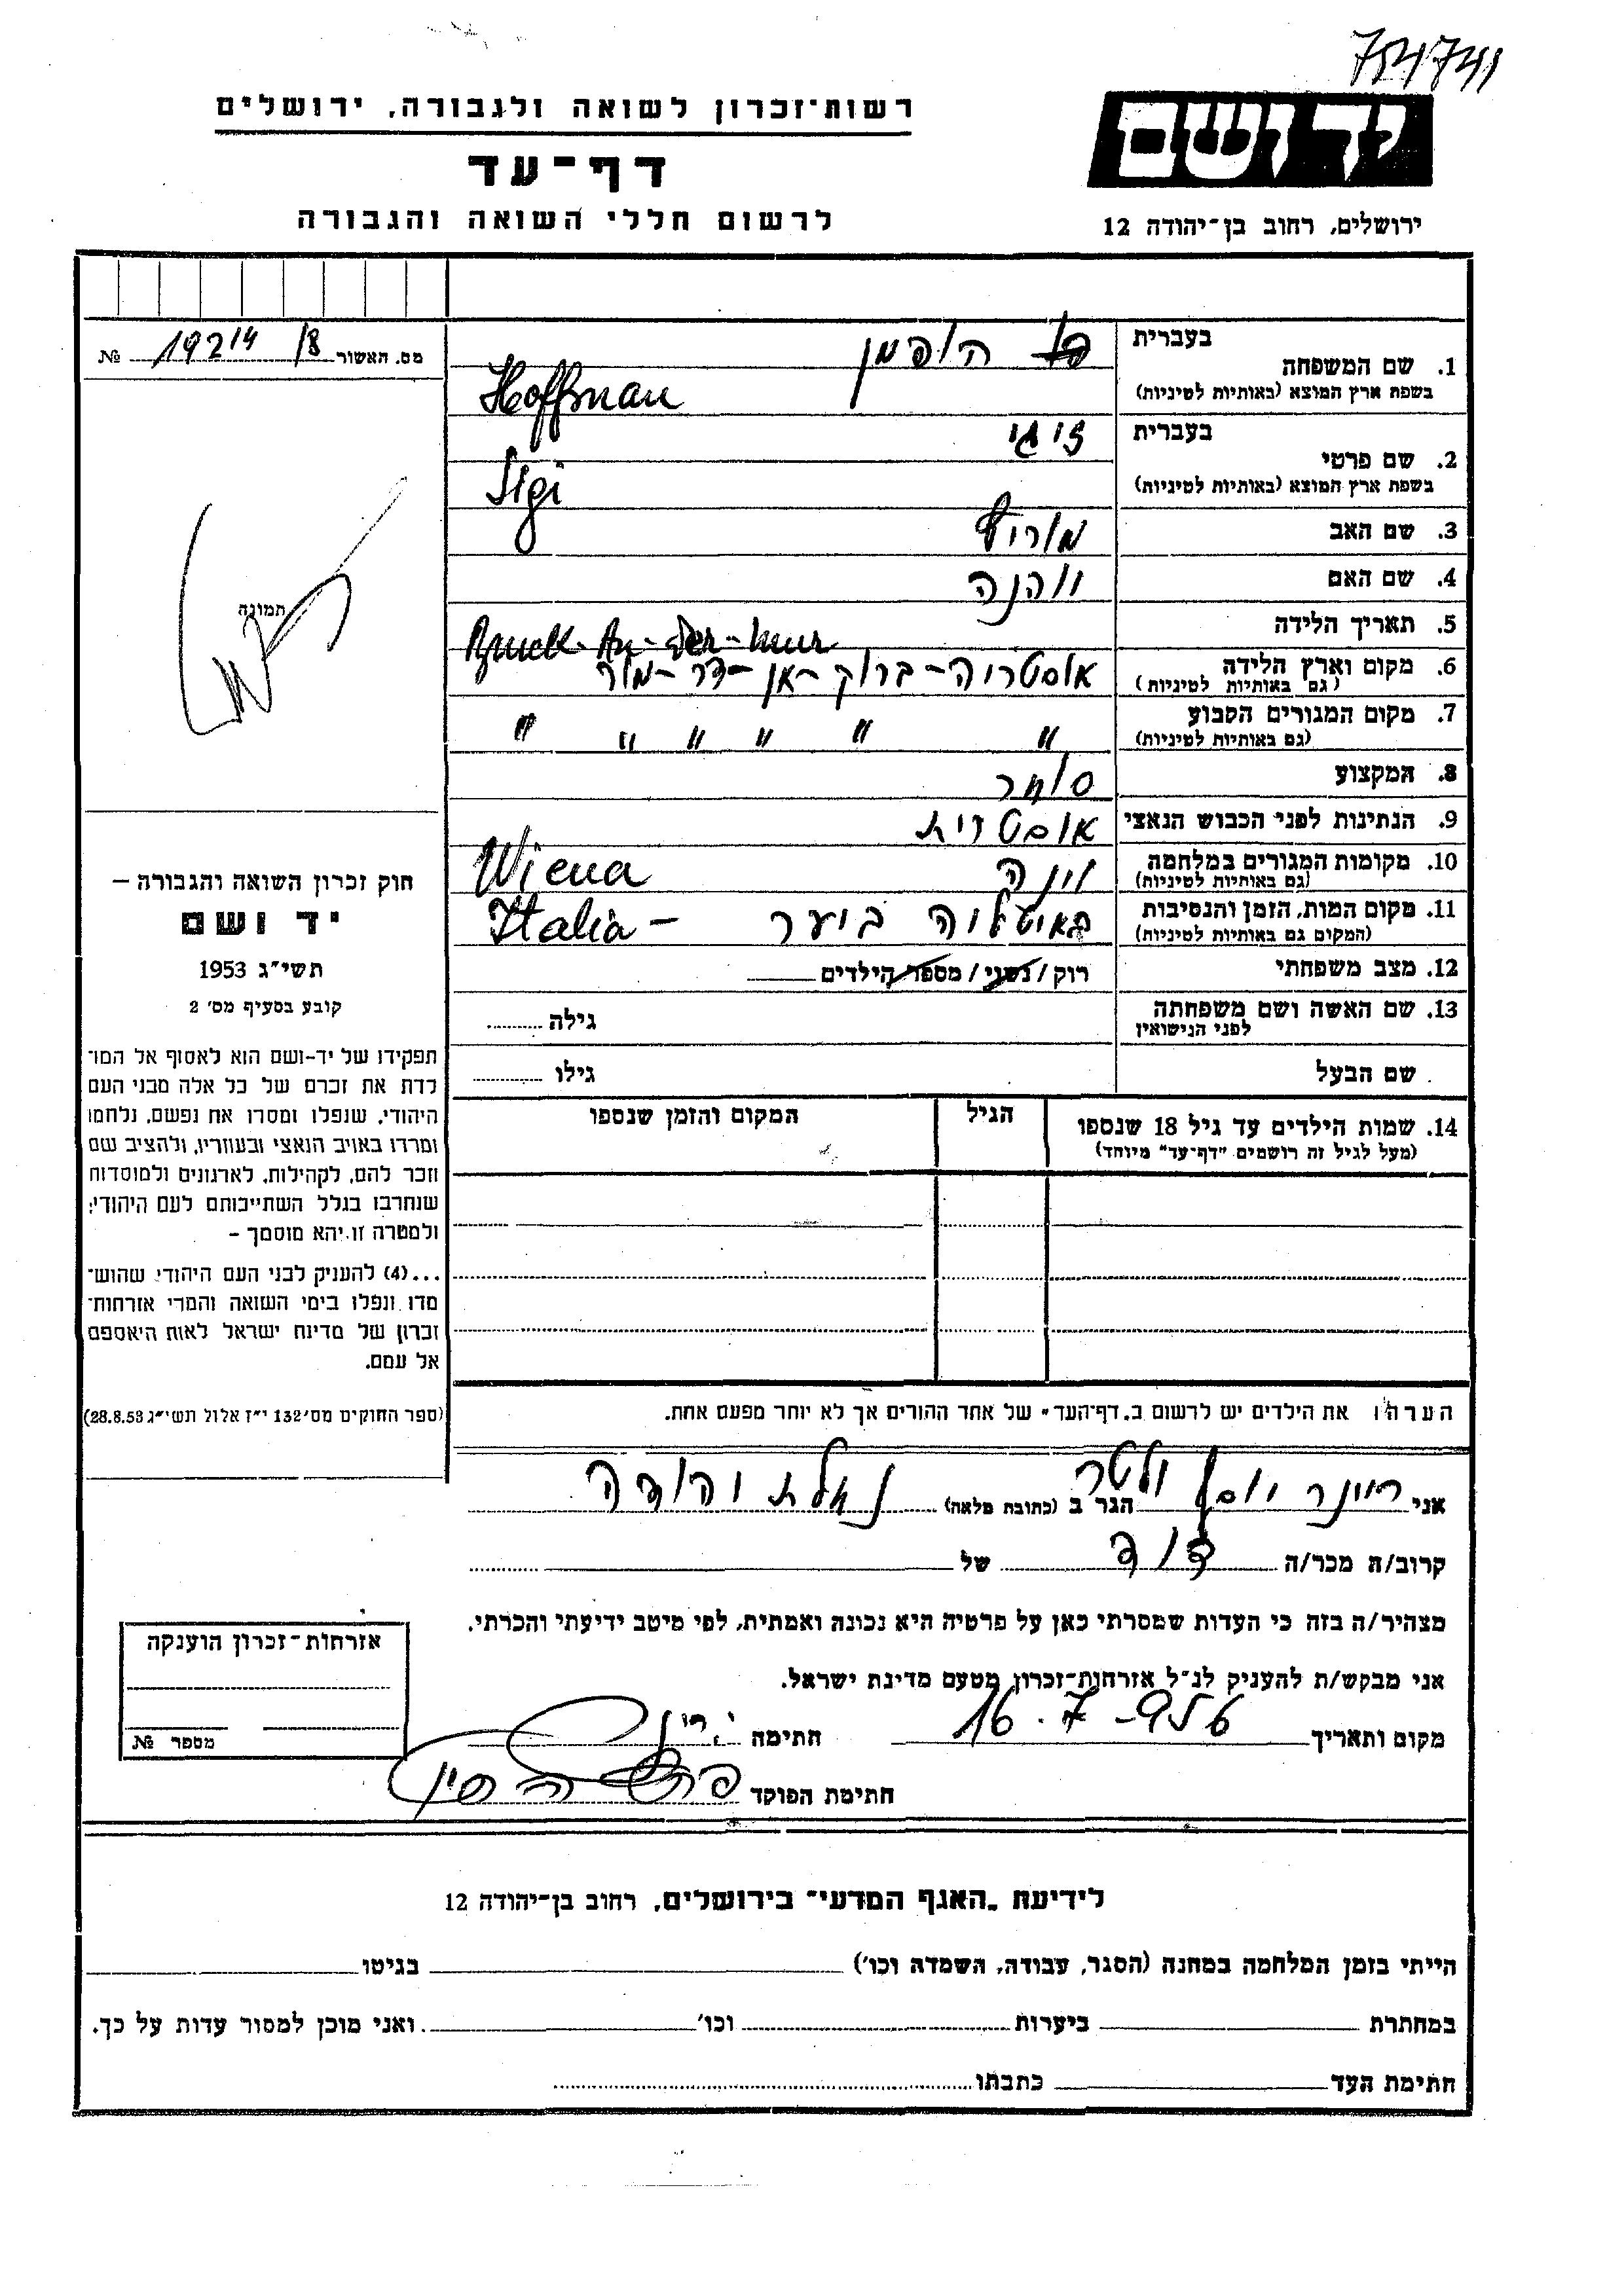 754741
יד ושם
ירושלים, רחוב בן־יהודה 12
רשות־זכרון לשואה ולגבורה, ירושלים
דף־עד
לרשום חללי השואה והגבורה
מס. האשור 19214 /8 №
תמונה
חוק זכרון השואה והגבורה –
יד ושם
תשי״ג 1953
קובע בסעיף מס׳ 2
תפקידו של יד-ושם הוא לאסוף אל המו־
לדת את זכרם של כל אלה מבני העם
היהודי, שנפלו ומסרו את נפשם, נלחמו
ומרדו באויב הנאצי ובעוזריו, ולהציב שם
וזכר להם, לקהילות, לארגונים ולמוסדות
שנחרבו בגלל השתייכותם לעם היהודי;
ולמטרה זו יהא מוסמך –
...(4) להעניק לבני העם היהודי שהוש־
מדו ונפלו בימי השואה והמרי אזרחות־
זכרון של מדינת ישראל לאות היאספם
אל עמם.
(ספר החוקים מס׳ 132 י״ז אלול תשי״ג 28.8.53)
בעברית הופמן
1. שם המשפחה
בשפת ארץ המוצא (באותיות לטיניות) Hoffman
בעברית זיגי
2. שם פרטי
בשפת ארץ המוצא (באותיות לטיניות) Sigi
3. שם האב מוריץ
4. שם האם יוהנה
5. תאריך הלידה
Bruck-An-der-Mur
6. מקום וארץ הלידה אוסטריה – ברוק – אן – דר – מור
(גם באותיות לטיניות)
7. מקום המגורים הקבוע " " " " " "
(גם באותיות לטיניות)
8. המקצוע סוחר
9. הנתינות לפני הכבוש הנאצי אוסטרית
10. מקומות המגורים במלחמה וינה Wiena
(גם באותיות לטיניות)
11. מקום המות, הזמן והנסיבות באיטליה ביער Italia –
(המקום גם באותיות לטיניות)
12. מצב משפחתי רוק / נשוי / מספר הילדים
13. שם האשה ושם משפחתה גילה
לפני הנישואין
שם הבעל גילו
14. שמות הילדים עד גיל 18 שנספו הגיל המקום והזמן שנספו
(מעל לגיל זה רושמים "דף־עד" מיוחד)
הערה: את הילדים יש לרשום ב„דף־העד" של אחד ההורים אך לא יותר מפעם אחת.
אני ריינר יוסף ולטר הגר ב (כתובת מלאה) נחלת יהודה
קרוב/ה מכר/ה דוד של
מצהיר/ה בזה כי העדות שמסרתי כאן על פרטיה היא נכונה ואמתית, לפי מיטב ידיעתי והכרתי.
אני מבקש/ת להעניק לנ״ל אזרחות־זכרון מטעם מדינת ישראל.
מקום ותאריך 16.7-956 חתימה
חתימת הפוקד
אזרחות־זכרון הוענקה
מספר №
לידיעת „האגף המדעי" בירושלים, רחוב בן־יהודה 12
הייתי בזמן המלחמה במחנה (הסגר, עבודה, השמדה וכו׳) בגיטו
במחתרת ביערות וכו׳ ואני מוכן למסור עדות על כך.
חתימת העד כתבתו